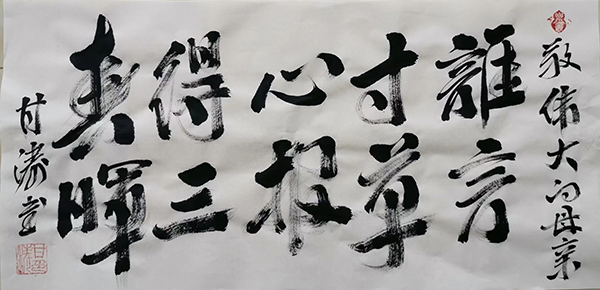 敬伟大的母亲
誰言
寸草
心报
得三
春暉
甘濤